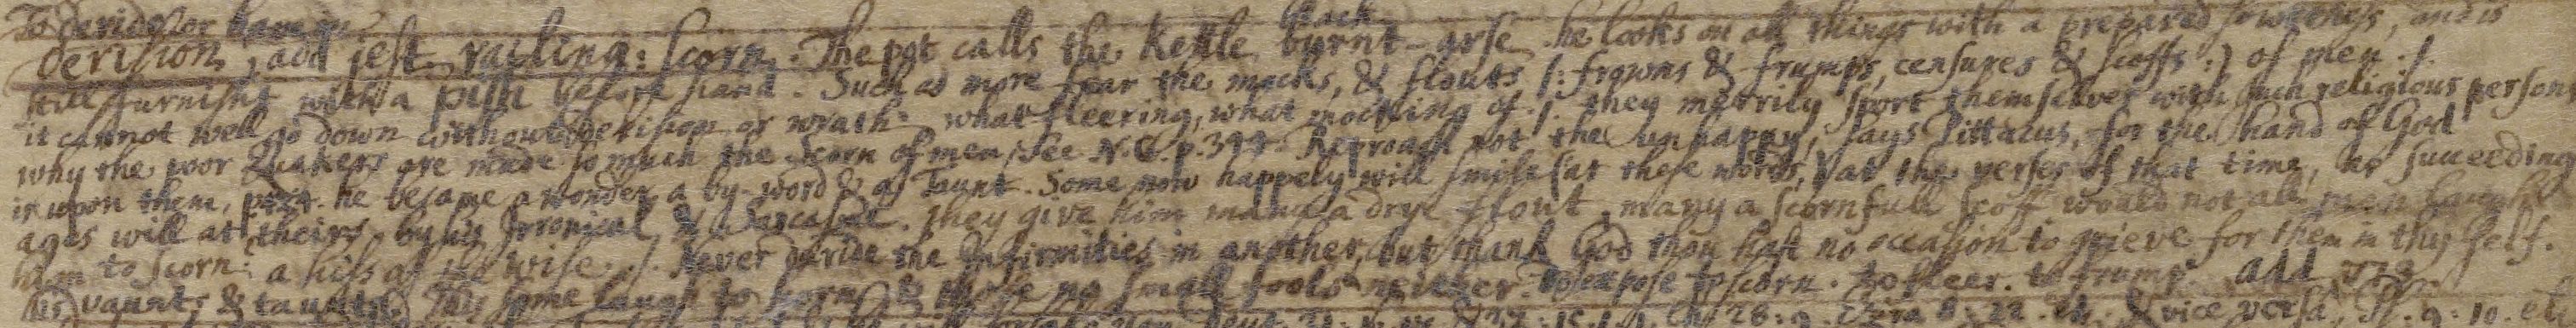 To deride, or have in black
derision, add jest. railing: scorn. The pot calls the Kettle burnt-arse. he looks on all things with a prepared sowerness, and is
still furnisht with a pish before hand. Such as more fear the mocks, & flouts /: frowns & frumps, censures & scoffs :) of men ./.
it cannot well go down without derision or wrath: what fleering, what mocking of ./. they merrily sport themselves with such religious persons
why the poor Quakers are made so much the Scorn of men, See N.C. p.394. Reproach not the unhappy, says Pittacus, for the hand of God
is upon them, he became a wonder, a by-word & a Taunt. Some now happely will smile at these words, & at the verses of that time, as succeeding
ages will at theirs. by his Jrronical & Sarcasme. they give him many a drye flout, many a scornfull scoff would not all men laugh
him to scorn: a hiss of the wise ./. Never deride the Infirmities in another, but thank God thou hast no occasion to grieve for them in thy self.
his vaunts & taunts. This some laugh to scorn, & those no small fools neither. To expose to scorn. to fleer. to frump. add
28: 9. Ezra 8: 22. & vice versa, Ps. 9: 10.